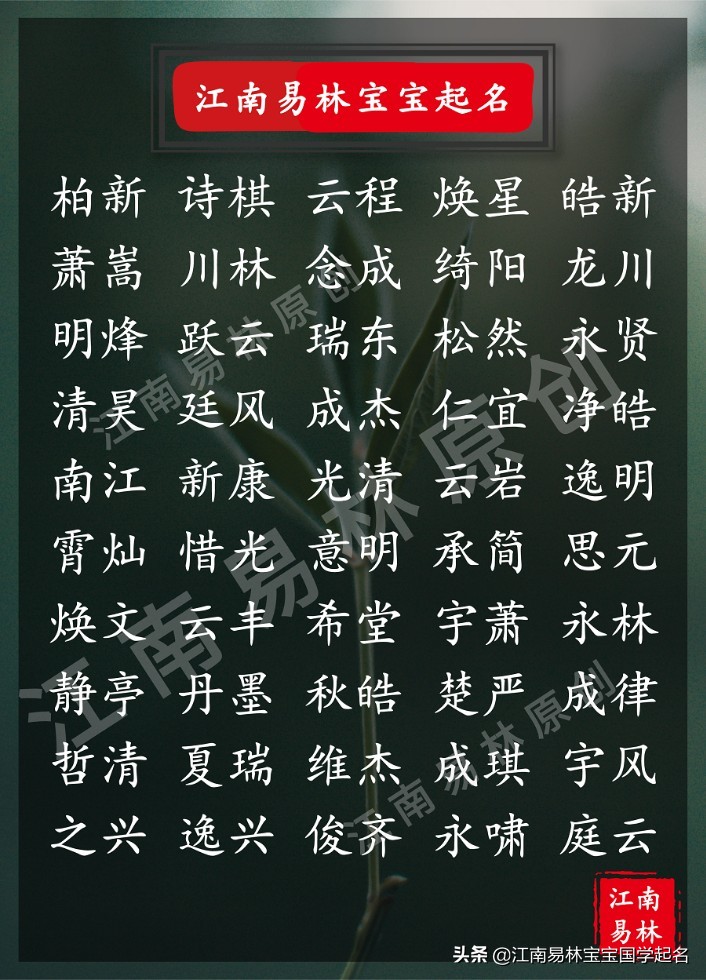 江南易林宝宝起名
柏新 诗棋 云程 焕星 皓新
萧嵩 川林 念成 绮阳 龙川
明烽 跃云 瑞东 松然 永贤
清昊 廷风 成杰 仁宜 净皓
南江 新康 光清 云岩 逸明
霄灿 惜光 意明 承简 思元
焕文 云丰 希堂 宇萧 永林
静亭 丹墨 秋皓 楚严 成律
哲清 夏瑞 维杰 成琪 宇风
之兴 逸兴 俊齐 永啸 庭云
江南易林原创
江南易林原创
江南易林原创
江南
易林
头条 @江南易林宝宝国学起名